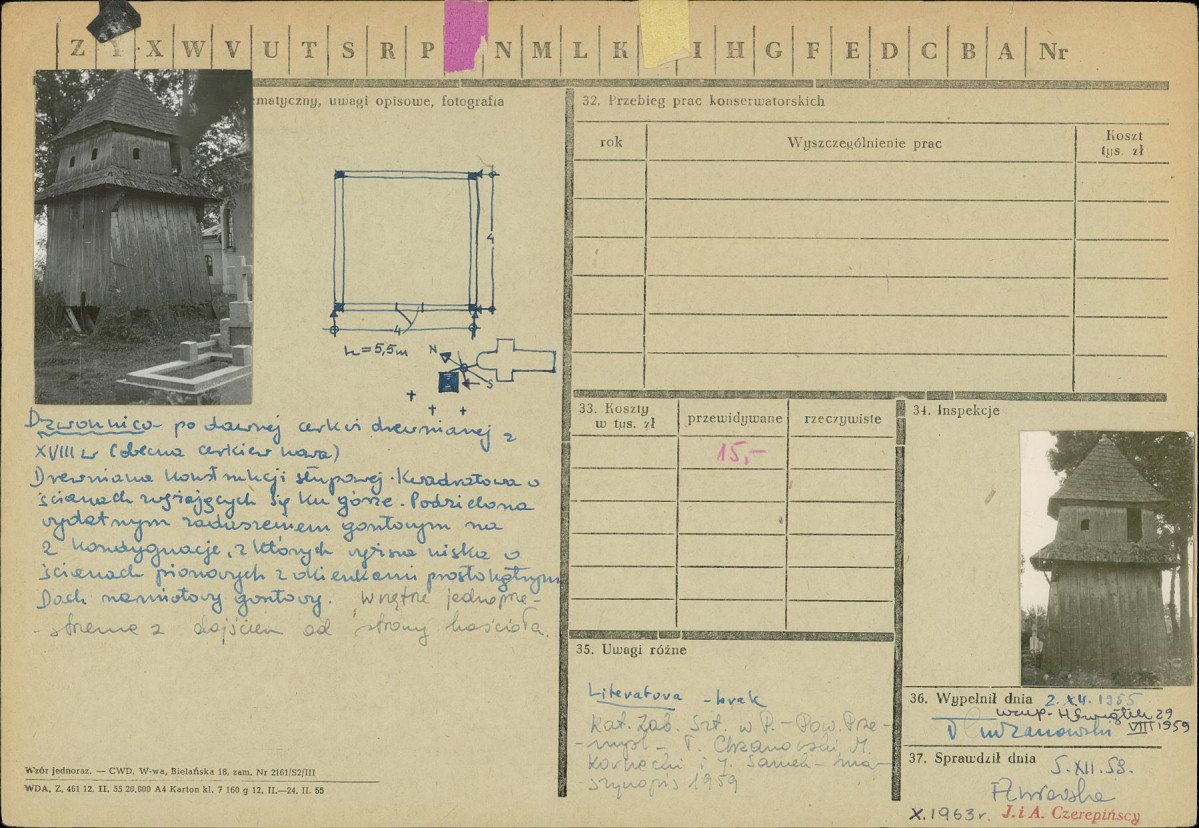 Z Y X W V U T S R P N M L K I H G F E D C B A Nr
ematyczny, uwagi opisowe, fotografia
4
4
h = 5,5 m
N
S
Dzwonnica po dawnej cerkwi drewnianej z
XVIII w (obecna cerkiew nowa)
Drewniana konstrukcji słupowej. Kwadratowa o
ścianach zwężających się ku górze. Podzielona
wydatnym zadaszeniem gontowym na
2 kondygnacje, z których wyższa niska o
ścianach pionowych z okienkami prostokątnymi
Dach namiotowy gontowy. Wnętrze jednoprze-
-strenne z dojściem od strony kościoła.
Wzór jednoraz. — CWD, W-wa, Bielańska 18, zam. Nr 2161/S2/III
WDA. Z. 461 12. II. 55 20,000 A4 Karton kl. 7 160 g 12. II.—24. II. 55
32. Przebieg prac konserwatorskich
rok Wyszczególnienie prac Koszt
tys. zł
33. Koszty
w tys. zł przewidywane rzeczywiste
15,-
34. Inspekcje
35. Uwagi różne
Literatura - brak
Kat. Zab. Szt. w P. - Pow. Prze-
-myśl - T. Chrzanowski, M.
Kornecki i J. Samek - ma-
-szynopis 1959
36. Wypełnił dnia 2.XII.1955
29
VIII 1959
37. Sprawdził dnia 5.XII.58.
X.1963 r. J. i A. Czerepińscy